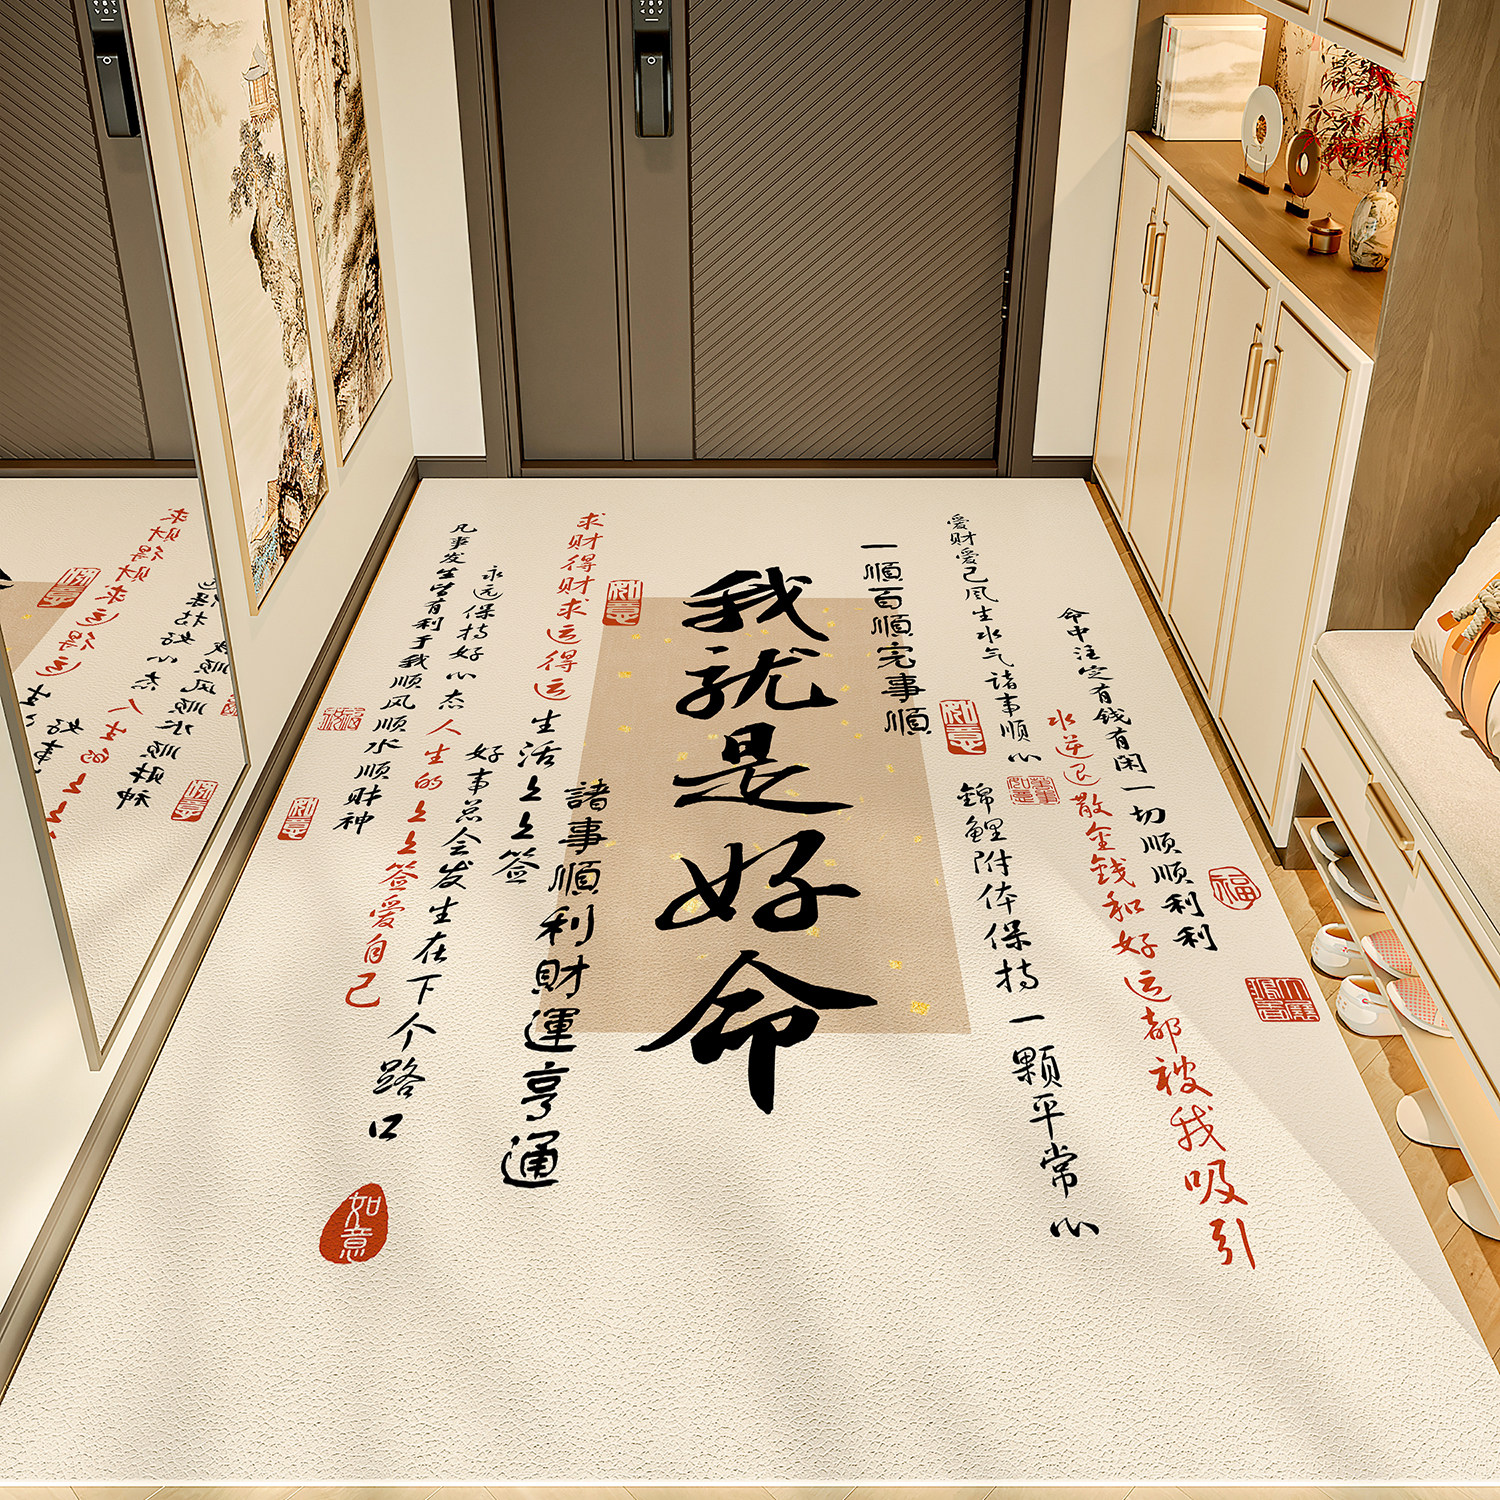 命中注定有錢有闲一切顺顺利利
福
水逆退散金錢和好运都被我吸引
爱财爱己风生水气诸事顺心
如意
錦鲤附体保持一颗平常心
一順百順完事順
我就是好命
如意
求财得财求运得运
生活上上签
諸事順利財運亨通
永远保持好心态
好事总会发生在下个路口
人生的上上签爱自己
凡事发生皆有利于我顺风顺水顺财神
如意
如意